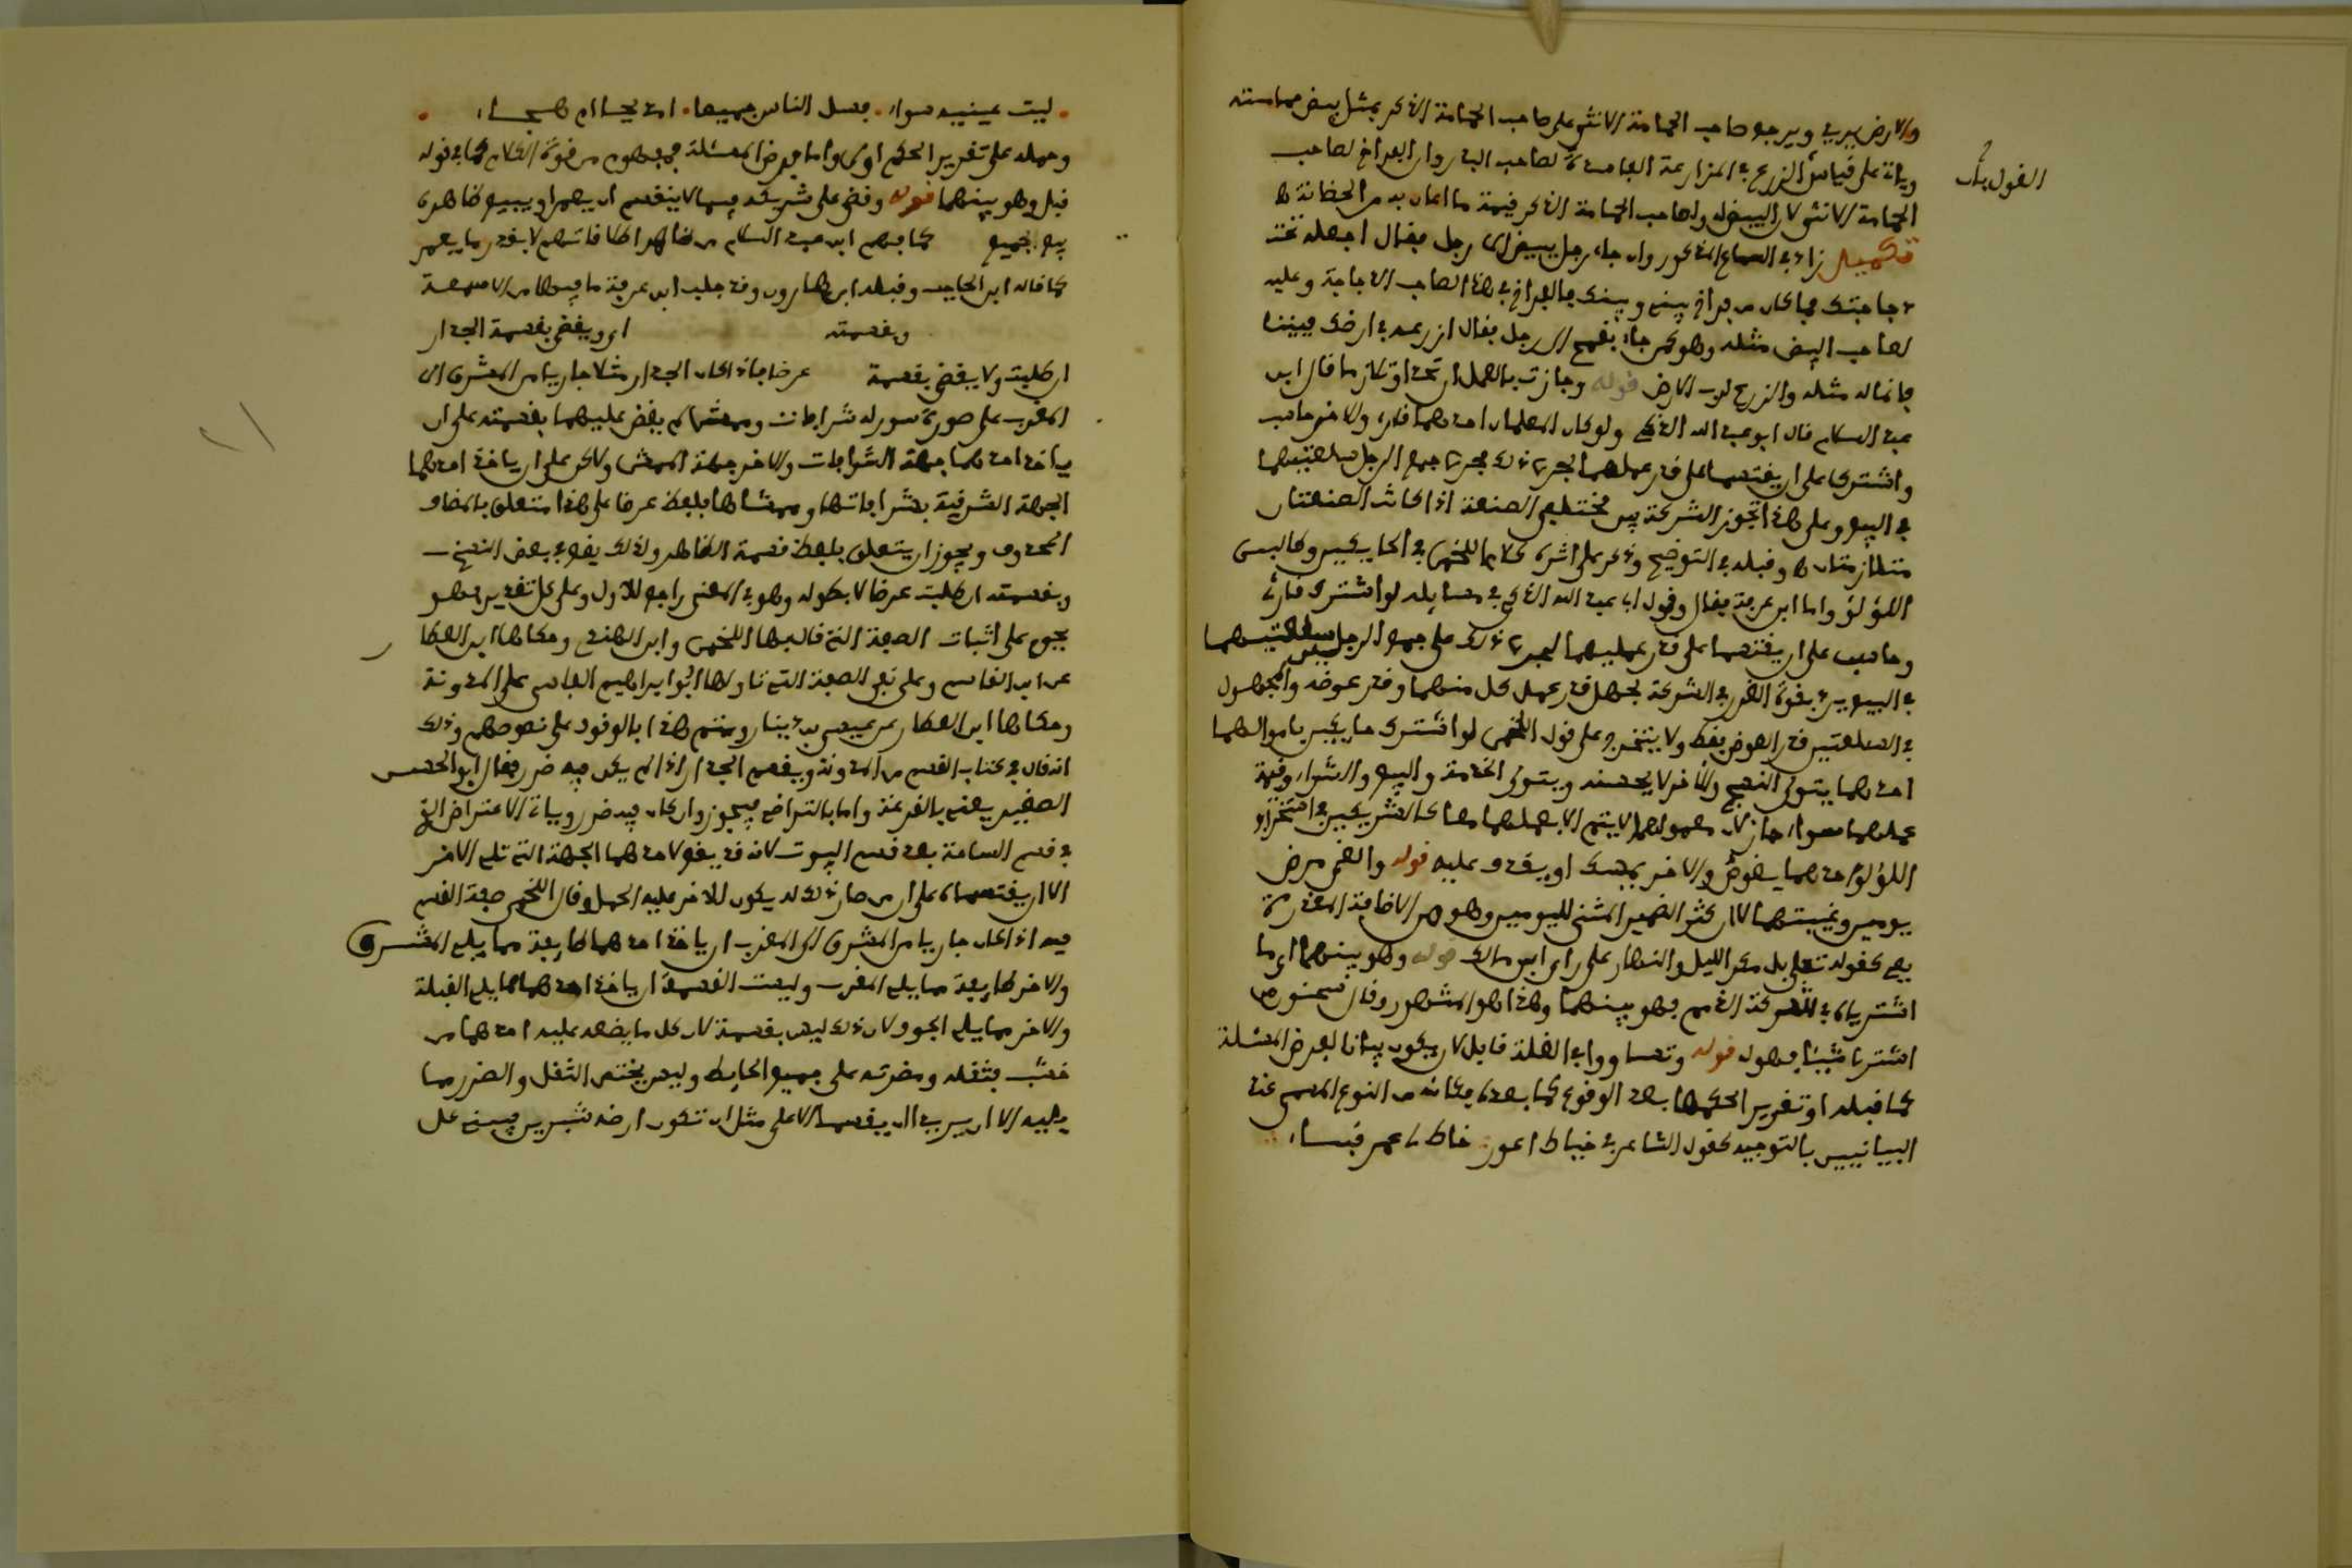 والارض بيد ويرجع صاحب الحمامة الانثى على صاحب الحمامة الذكر بمثل بيض حمامته
وياتي على قياس الزرع في المزارعة الفاسدة لصاحب البذر وان الفراخ لصاحب
القول بان
الحمامة الانثى لان البيض له ولصاحب الحمامة الذكر قيمة ما اعان به من الحضانة
تكميل زاد في السماع المذكور وان جاء رجل ببيض الى رجل فقال اجعله تحت
دجاجتك فما كان من فراخ بيني وبينك فالفراخ في هذا لصاحب الدجاجة وعليه
لصاحب البيض مثله وهو كمن جاء بقمح الى رجل فقال ازرعه في ارضك بيننا
فانما له مثله والزرع لرب الارض قوله وجازت بالعمل ان اتحد او تلازما قال ابن
عبد السلام قال ابو عبد الله الذكي ولو كان المعلمان احدهما قارئ والاخر حاسب
واشتركا على ان يقتسما على قدر عمليهما لجرى ذلك مجرى جمع الرجلين سلعتيهما
في البيع وعلى هذا تجوز الشركة بين مختلفي الصنعة اذا كانت الصنعتان
متلازمتان وقبله في التوضيح وذكر على اثره كلام اللخمي في الحايكين وكاليسى
اللؤلؤ واما ابن عرفة فقال وقول ابي عبد الله الذكي في مسايله لو اشترك قارئ
وحاسب على ان يقتسما على قدر عمليهما لجرى ذلك على جمع الرجلين سلعتيهما
في البيع يرد بقوة الغرر في الشركة لجهل قدر عمل كل منهما وقدر عوضه والمجهول
في السلعتين قدر العوض فقط ولا يتخرج على قول اللخمي لو اشترك حايكين باموالهما
احدهما يتولى النسج والاخر لا يحسنه ويتولى الخدمة والبيع والشراء وقيمة
عملهما سواء جاز لان محمولهما لا يتم الا بعملهما معا كالشريكين في استخراج
اللؤلؤ احدهما يغوص والاخر يمسك او يقدف عليه قوله والغى مرض
يومين وغيبتهما لا ان كثر الضمير المثنى لليومين وهو من الاضافة المقدرة
بفي كقوله تعالى بل مكر الليل والنهار على راي ابن مالك قوله وهو بينهما اي ما
اشترياه في شركة الذمم فهو بينهما وهذا هو المشهور وقال سحنون من
اشترى شيئا فهو له قوله وتساووا في الغلة قابل لان يكون بيانا لفرض المسئلة
كما قبله او تقرير الحكمها بعد الوقوع كما بعده فكانه من النوع المسمى عند
البيانيين بالتوجيه كقول الشاعر في خياط اعور خاط لي عمر قباء
ليت عينيه سواء فسل الناس جميعا امديح ام هجاء
وحمله على تقرير الحكم اولى واما فرض المسئلة فمفهوم من قوة الكلام كما في قوله
قبل وهو بينهما قوله وقضى على شريك فيما لا ينقسم ان يعمر او يبيع ظاهره
يبيع الجميع كما فهم ابن عبد السلام من ظاهر اطلاقاتهم لا بقدر ما يعمر
كما قال ابن الحاجب وقبله ابن هارون وقد جلب ابن عرفة ما فيها من الاسمعة
وبقسمته اي ويقضى بقسمة الجدار
ان طلبت ولا يقضى بقسمة عرضا فاذا كان الجدار مثلا جاريا من المشرق الى
المغرب على صورة سور له شرافات وممشى لم يقض عليهما بقسمته على ان
ياخذ احدهما جهة الشرافات والاخر جهة الممشى ولكن على ان ياخذ احدهما
الجهة الشرقية بشرافاتها وممشاها بلفظ عرضا على هذا متعلق بالمضاف
المحذوف ويجوز ان يتعلق بلفظ قسمة الظاهر وذلك يقع في بعض النسخ
وبقسمته ان طلبت عرضا لا بطوله وهو في المعنى راجع للاول وعلى كل تقدير فهو
يحوم على اثبات الصفة التي قال بها اللخمي وابن الهندي وحكاها ابن العطار
عن ابن القاسم وعلى نفي الصفة التي تاولها ابو ابراهيم الفاسي على المدونة
وحكاها ابن العطار عن عيسى بن دينار ويتم هذا بالوقوف على نصوصهم وذلك
انه قال في كتاب القسم من المدونة ويقسم الجدار اذا لم يكن فيه ضرر فقال ابو الحسن
الصغير يعني بالقرعة واما بالتراضي فيجوز وان كان فيه ضرر وياتي الاعتراض الذي
في قسم الساحة بعد قسم البيوت لانه قد يقع لاحدهما الجهة التي تلي الاخر
الا ان يقتسماه على ان من صار ذلك له يكون للاخر عليه الحمل وقال اللخمي صفة القسم
فيه اذا كان جاريا من المشرق الى المغرب ان ياخذ احدهما طايفة مما يلي المشرق
والاخر طايفة مما يلي المغرب وليست القسمة ان ياخذ احدهما مما يلي القبلة
والاخر مما يلي الجوف لان ذلك ليس بقسمة لان كل ما يضعه عليه احدهما من
خشب فثقله ومضرته على جميع الحايط وليس يختص الثقل والضرر مما
يليه الا ان يريد ان يقسما الاعلى مثل ان تكون ارضه شبرين فيبني على